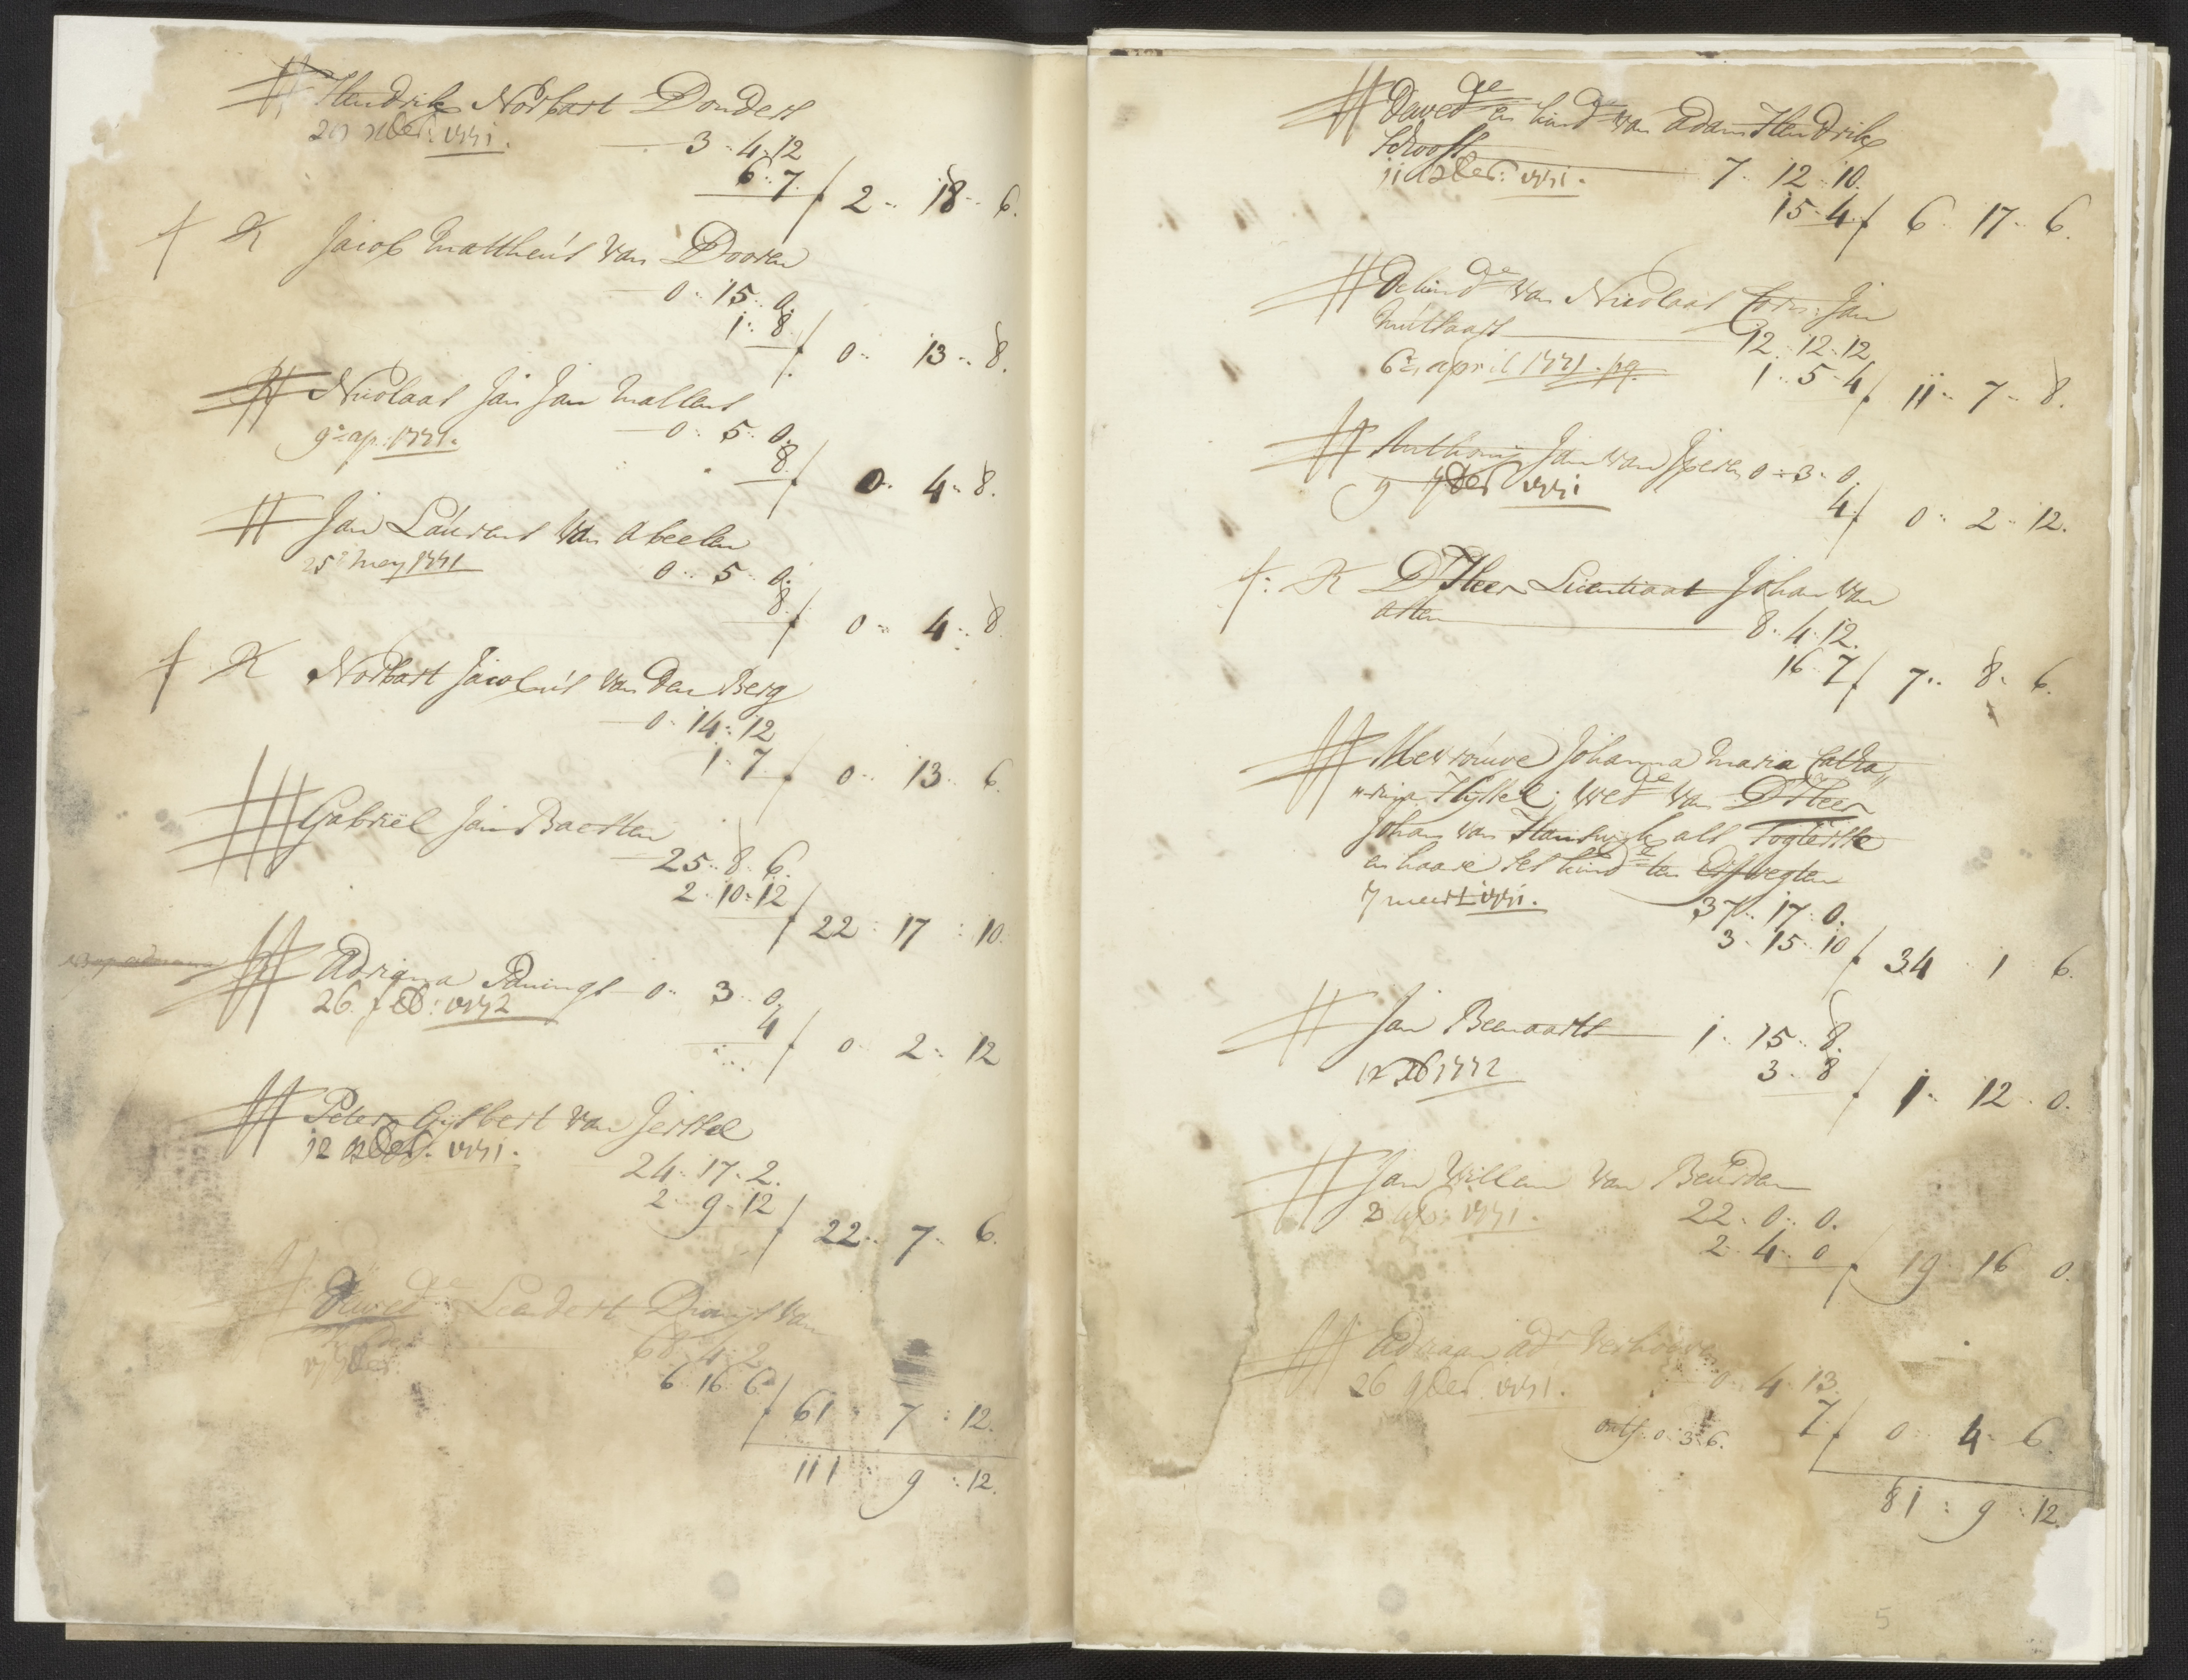 Hendrik Norbart Donders
20 xber: 1771.
3 - 4 - 12
6 - 7 / 2 - 18 - 6.
K Jacob Mattheus van Dooren
0 - 15 - 0.
1 - 8 / 0 - 13 - 8.
Nicolaas Jan Jan Mallens
9e ap: 1771.
0 - 5 - 0.
8 / 0 - 4 - 8.
Jan Laurens van Abeelen
25e Mey 1771
0 - 5 - 0.
8 / 0 - 4 - 8.
K Norbart Jacobus van den Berg
0 - 14 - 12
1 - 7 / 0 - 13 - 6
Gabriël Jan Baesten
25 - 8 - 6.
2 - 10 - 12 / 22 : 17 : 10.
Adriana 0 - 3 - 0.
26. feb: 1772
4 / 0 - 2 - 12
Peter Gysbert van Jerssel
12 xber. 1771.
24 - 17 - 2.
2 - 9 - 12 / 22 - 7 - 6.
Leendert van
68 - 4 - 2
6 - 16 - 6 / 61 : 7 : 12.
111 : 9 : 12.
De wede en kinde van Adam Hendrik
Schrooff
11 xber: 1771.
7 - 12 - 10.
15 - 4 / 6 - 17 - 6.
De kinde van Nicolaas Corn: Jan
Mutsaars
12 - 12 - 12
6e april 1771. pg.
1 - 5 - 4 / 11 - 7 - 8.
Anthony Jan van Iperen 0 - 3 - 0.
9 9ber 1771
4 / 0 - 2 - 12.
K D'Heer Licentiaat Johan van
Asten
8 - 4 - 12.
16 - 7 / 7 - 8 - 6.
Mevrouwe Johanna Maria Catha„
„rina Hyssel; wede van D'Heer
Johan van Hanswyk als Togterse
en haare ses kinde ten Erffregten
7 meert 1771.
37 - 17 - 0.
3 - 15 - 10 / 34 - 1 - 6.
Jan Beeraarts 1 - 15 - 8.
feb 1772
3 - 8 / 1 - 12 - 0.
Jan Willem van Beurden
1771.
22 - 0 - 0.
2 - 4 - 0 / 19 - 16 - 0.
Adriaan Adr Verhoeven
26 9ber. 1771.
0 - 4 - 13.
7 / 0 - 4 - 6.
ontf. 0 - 3 - 6.
81 : 9 : 12.
5